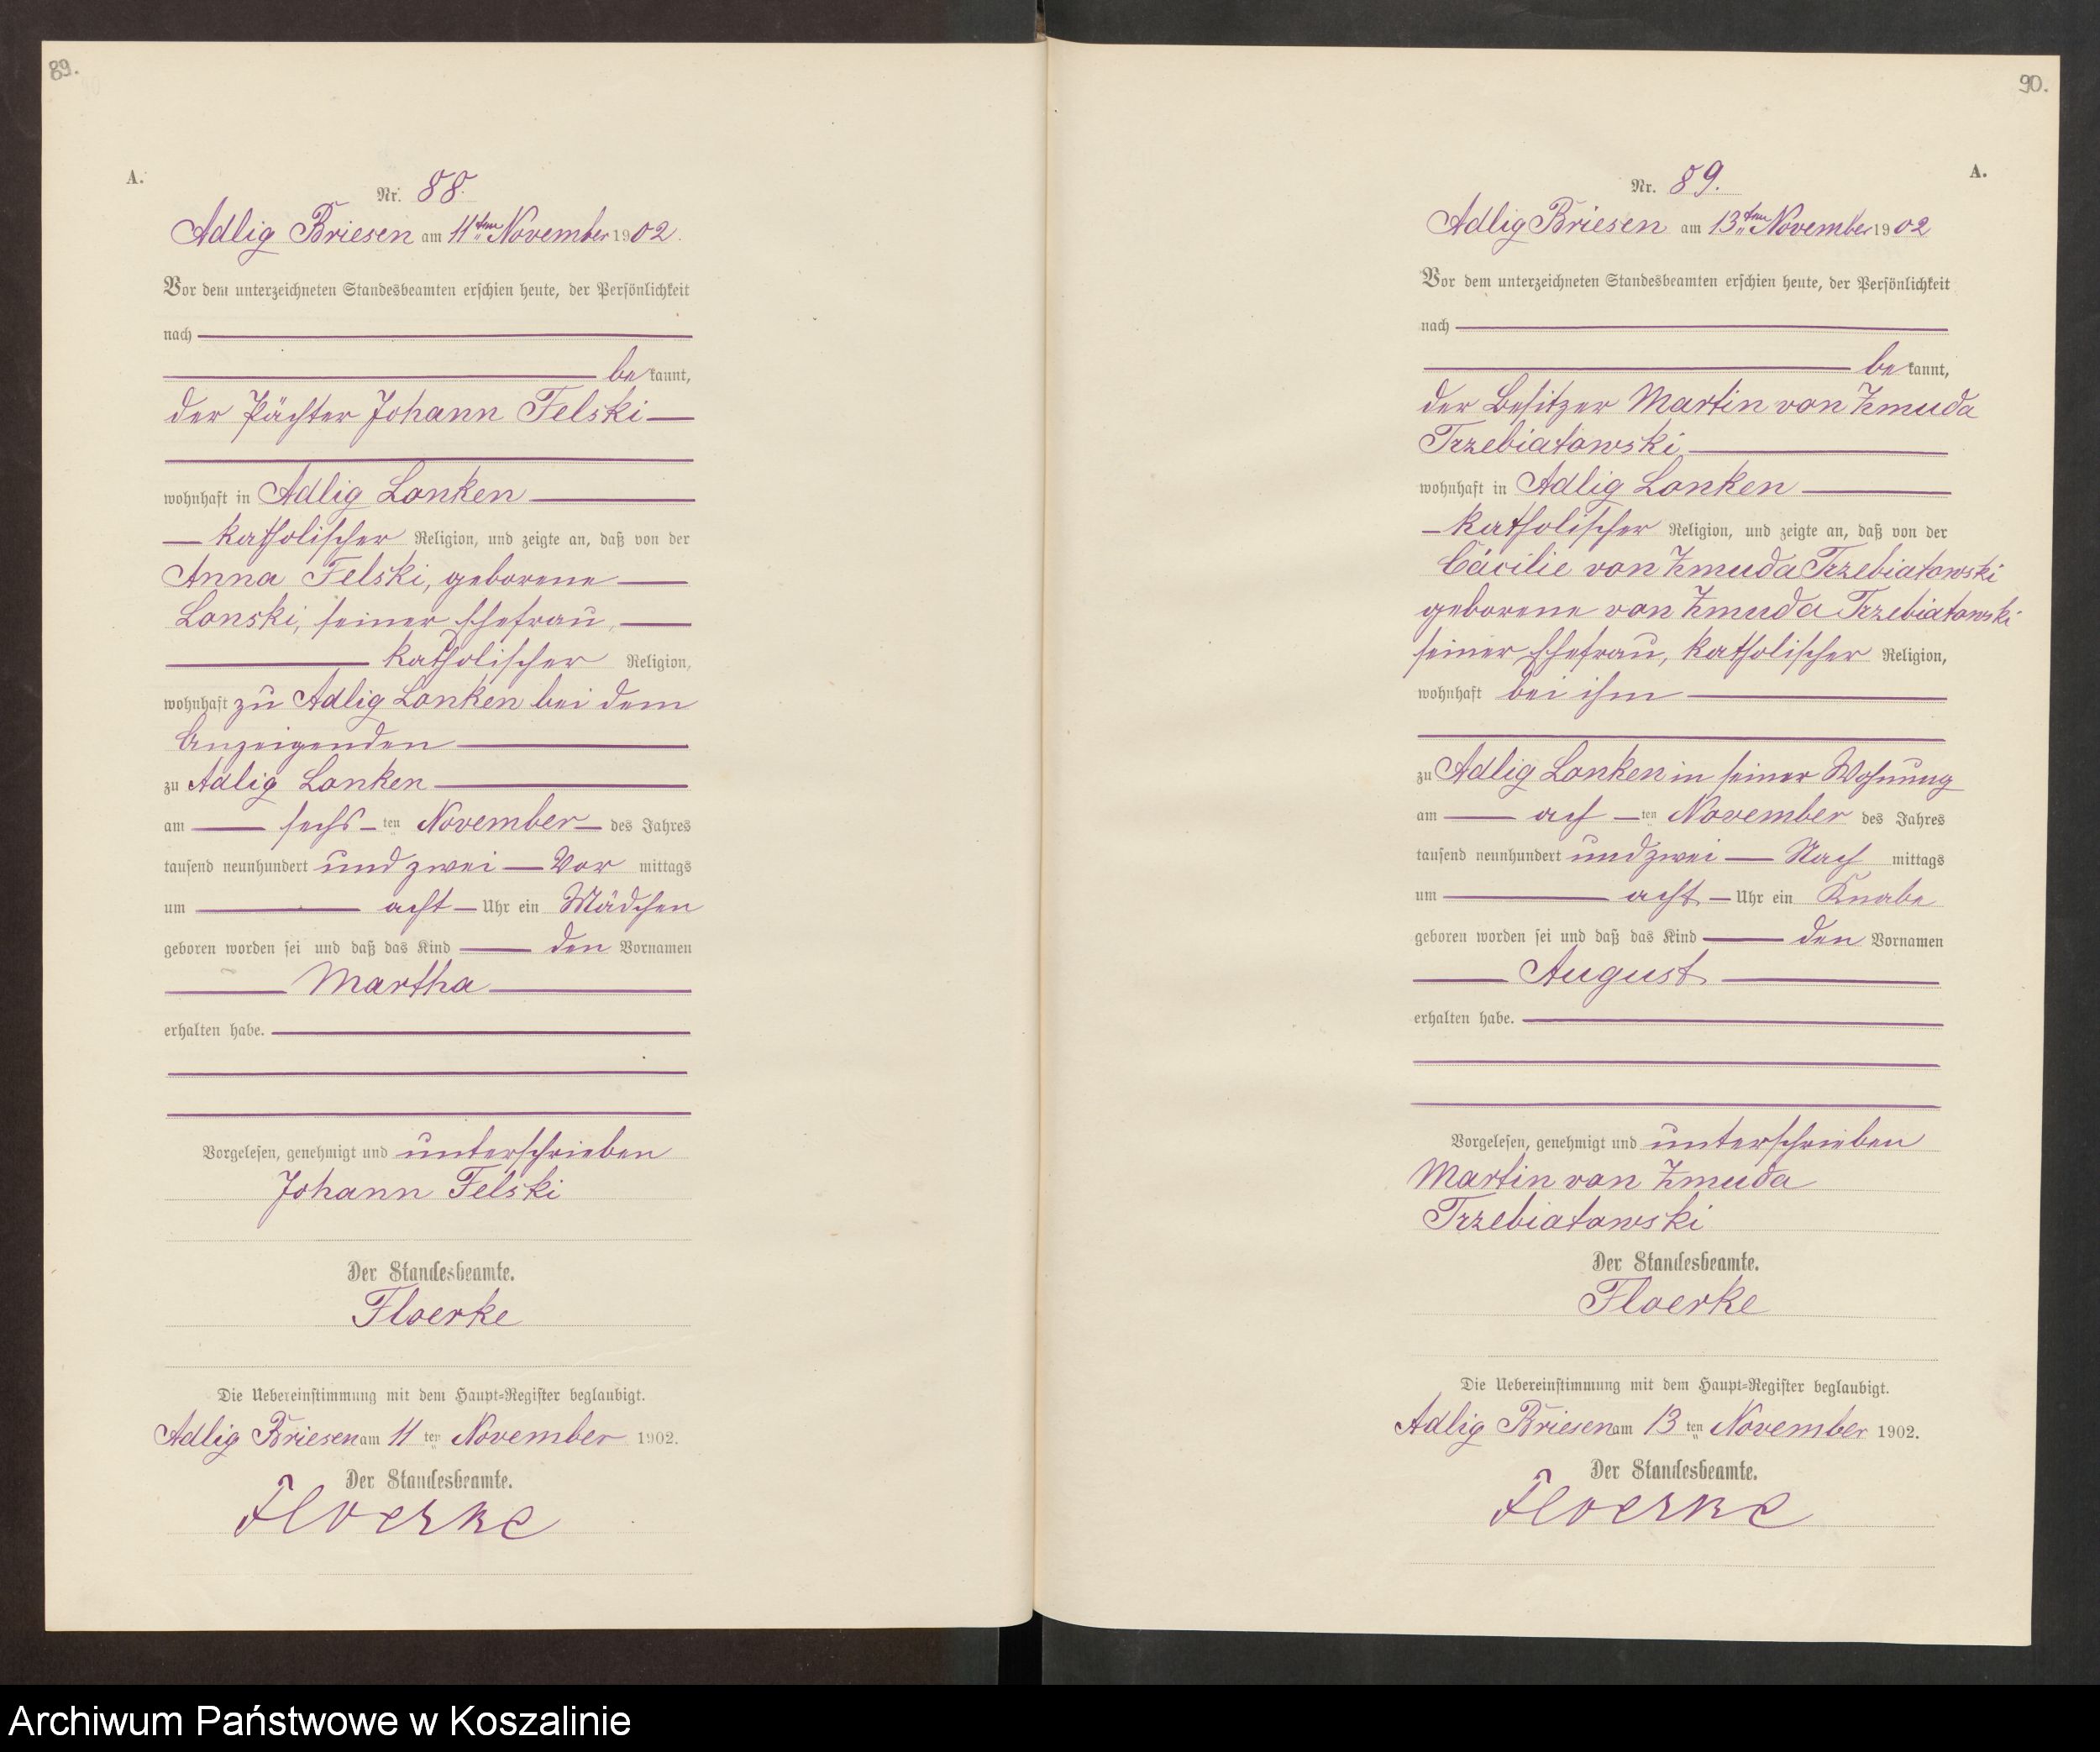 89.
A.
Nr. 88.
Adlig Briesen am 11ten November 1902.
Vor dem unterzeichneten Standesbeamten erschien heute, der Persönlichkeit
nach
bekannt,
der Pächter Johann Felski
wohnhaft in Adlig Lonken
katholischer Religion, und zeigte an, daß von der
Anna Felski, geborene
Lonski, seiner Ehefrau,
katholischer Religion,
wohnhaft zu Adlig Lonken bei dem
Anzeigenden
zu Adlig Lonken
am sechsten November des Jahres
tausend neunhundert und zwei Vormittags
um acht Uhr ein Mädchen
geboren worden sei und daß das Kind den Vornamen
Martha
erhalten habe.
Vorgelesen, genehmigt und unterschrieben
Johann Felski
Der Standesbeamte.
Floerke
Die Uebereinstimmung mit dem Haupt-Register beglaubigt.
Adlig Briesen am 11ten November 1902.
Der Standesbeamte.
Floerke
90.
A.
Nr. 89.
Adlig Briesen am 13ten November 1902
Vor dem unterzeichneten Standesbeamten erschien heute, der Persönlichkeit
nach
bekannt,
der Besitzer Martin von Zmuda
Trzebiatowski
wohnhaft in Adlig Lonken
katholischer Religion, und zeigte an, daß von der
Cäcilie von Zmuda Trzebiatowski
geborene von Zmuda Trzebiatowski
seiner Ehefrau, katholischer Religion,
wohnhaft bei ihm
zu Adlig Lonken in seiner Wohnung
am achten November des Jahres
tausend neunhundert und zwei Nachmittags
um acht Uhr ein Knabe
geboren worden sei und daß das Kind den Vornamen
August
erhalten habe.
Vorgelesen, genehmigt und unterschrieben
Martin von Zmuda
Trzebiatowski
Der Standesbeamte.
Floerke
Die Uebereinstimmung mit dem Haupt-Register beglaubigt.
Adlig Briesen am 13ten November 1902.
Der Standesbeamte.
Floerke
Archiwum Państwowe w Koszalinie